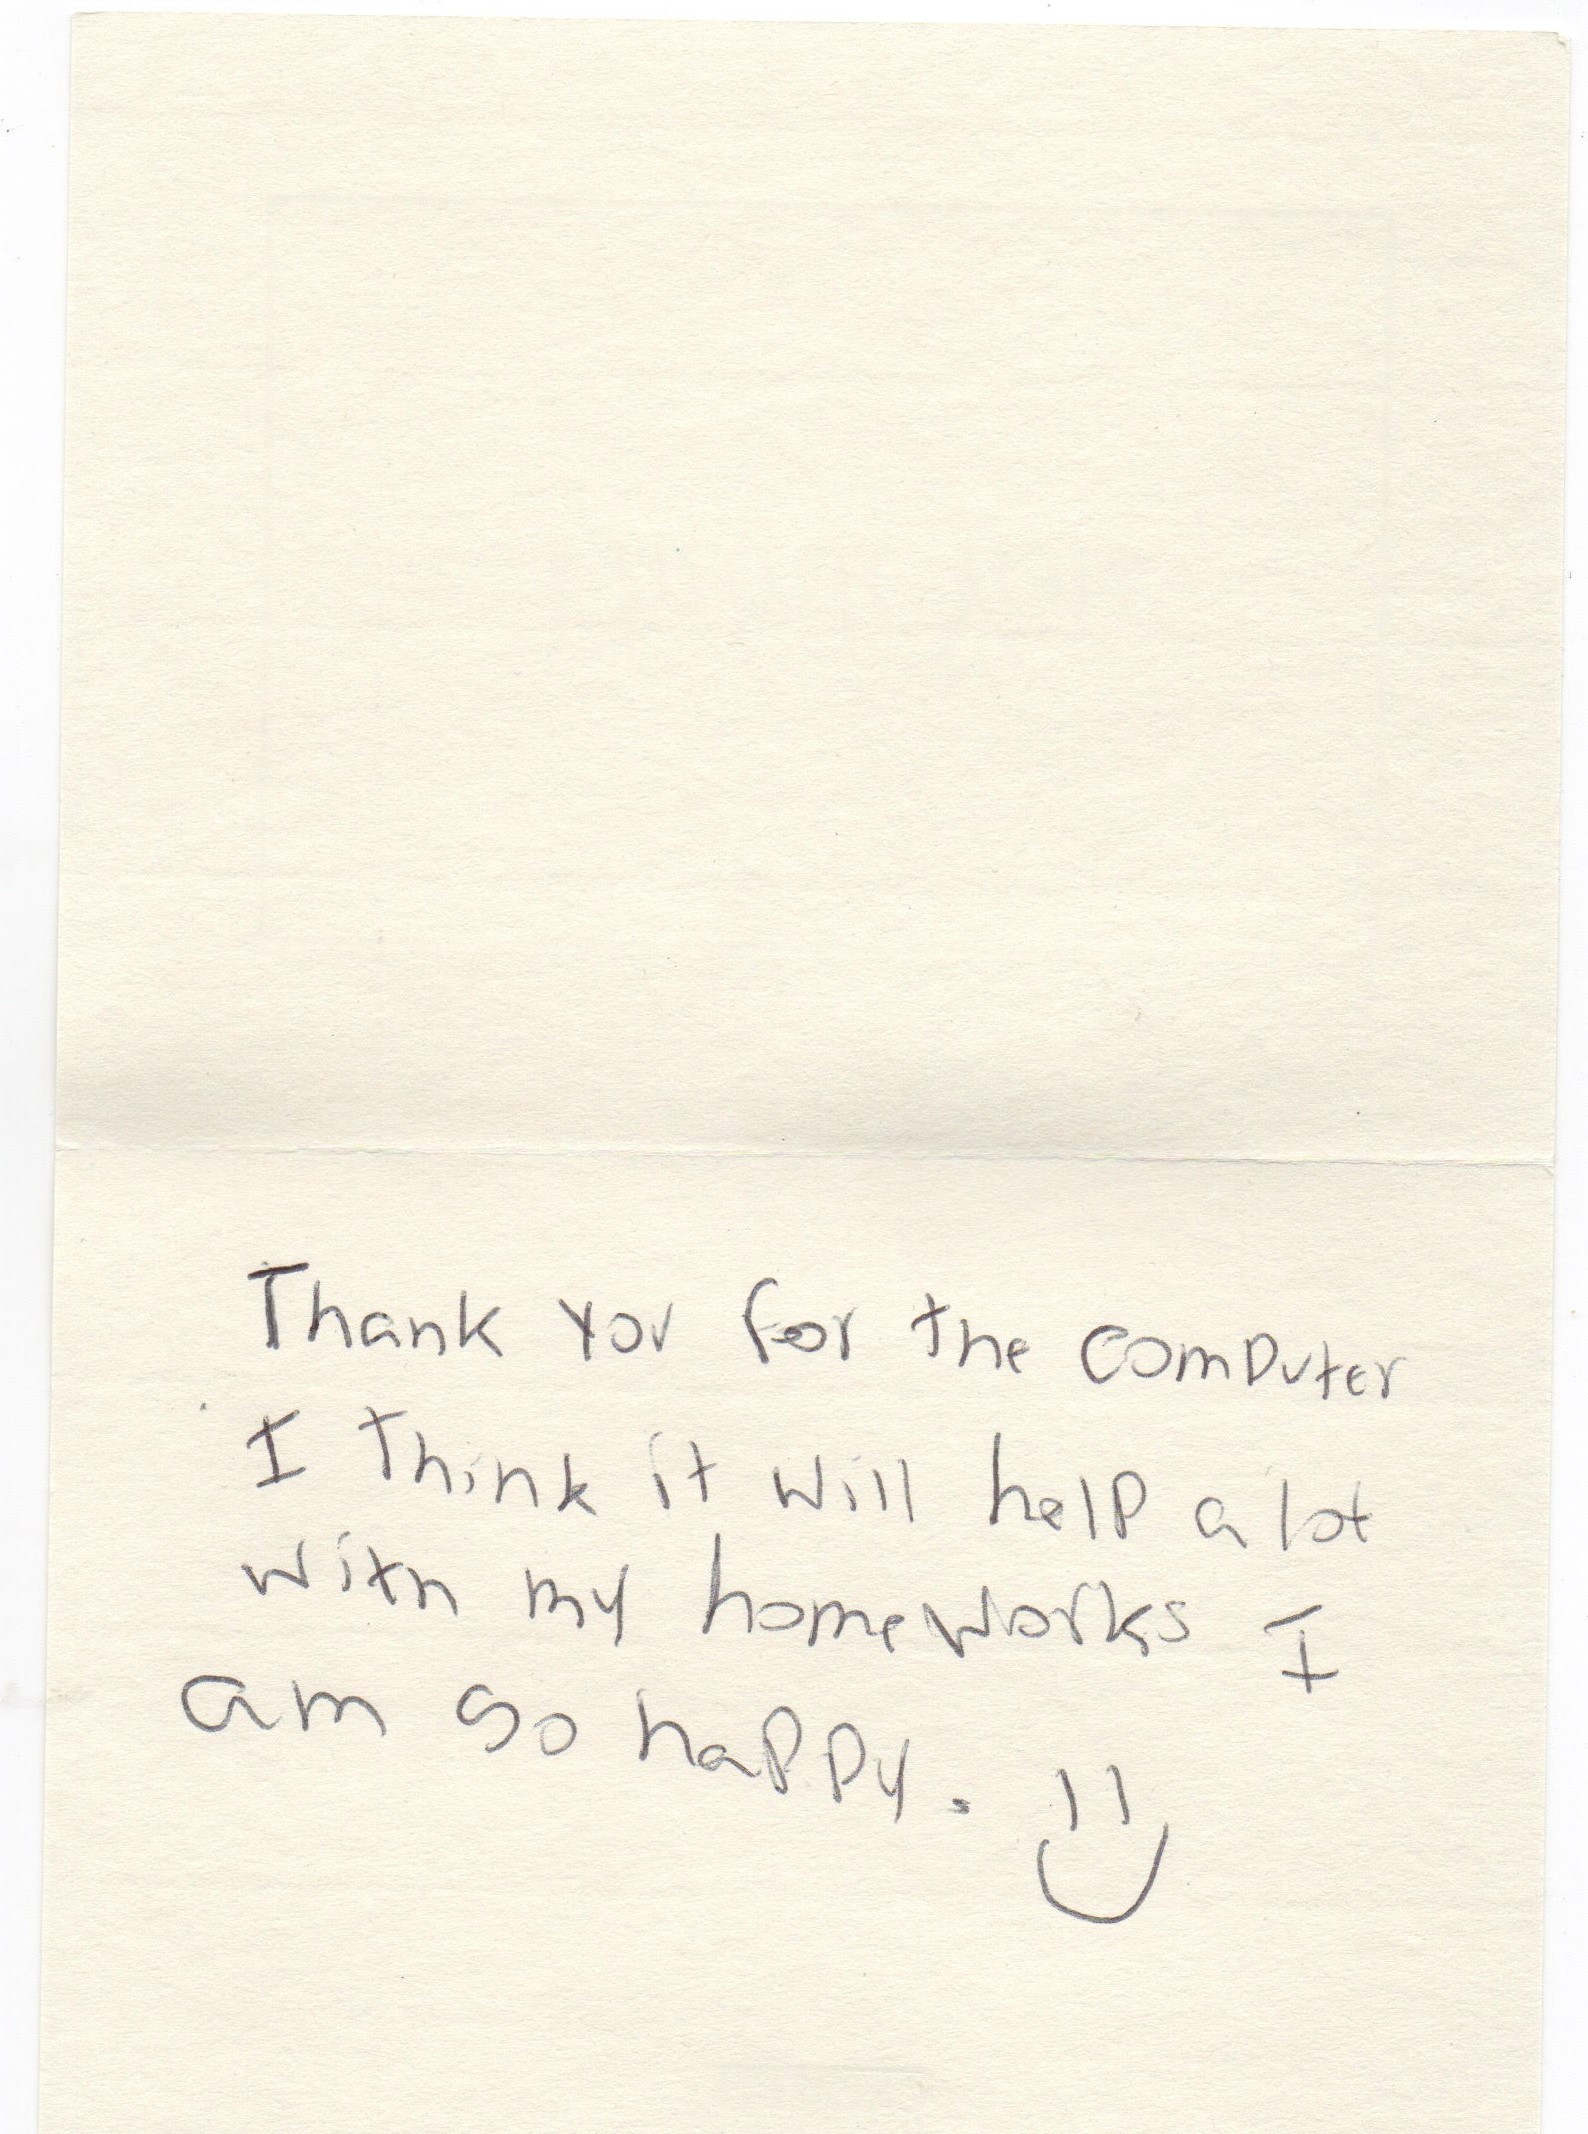 Thank you for the computer
I think it will help a lot
with my homeworks I
am so happy.